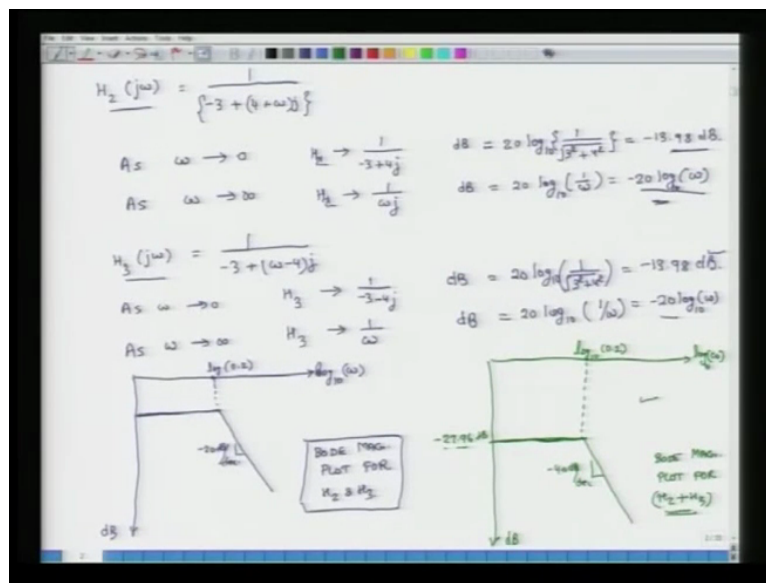 File Edit View Insert Actions Tools Help
H₂(jω) = 1 / {-3 + (4+ω)j}
As ω → 0 H₂ → 1 / (-3+4j) dB = 20 log₁₀ {1 / √(3²+4²)} = -13.98 dB.
As ω → ∞ H₂ → 1 / ωj dB = 20 log₁₀ (1/ω) = -20 log₁₀(ω)
H₃(jω) = 1 / (-3 + (ω-4)j)
As ω → 0 H₃ → 1 / (-3-4j) dB = 20 log₁₀ (1 / √(3²+4²)) = -13.98 dB.
As ω → ∞ H₃ → 1 / ω dB = 20 log₁₀ (1/ω) = -20 log₁₀(ω)
log (0.2) log₁₀(ω)
BODE MAG.
PLOT FOR
H₂ & H₃
dB
log₁₀ (0.2) log(ω)
-27.96 dB
BODE MAG.
PLOT FOR
(H₂+H₃)
dB